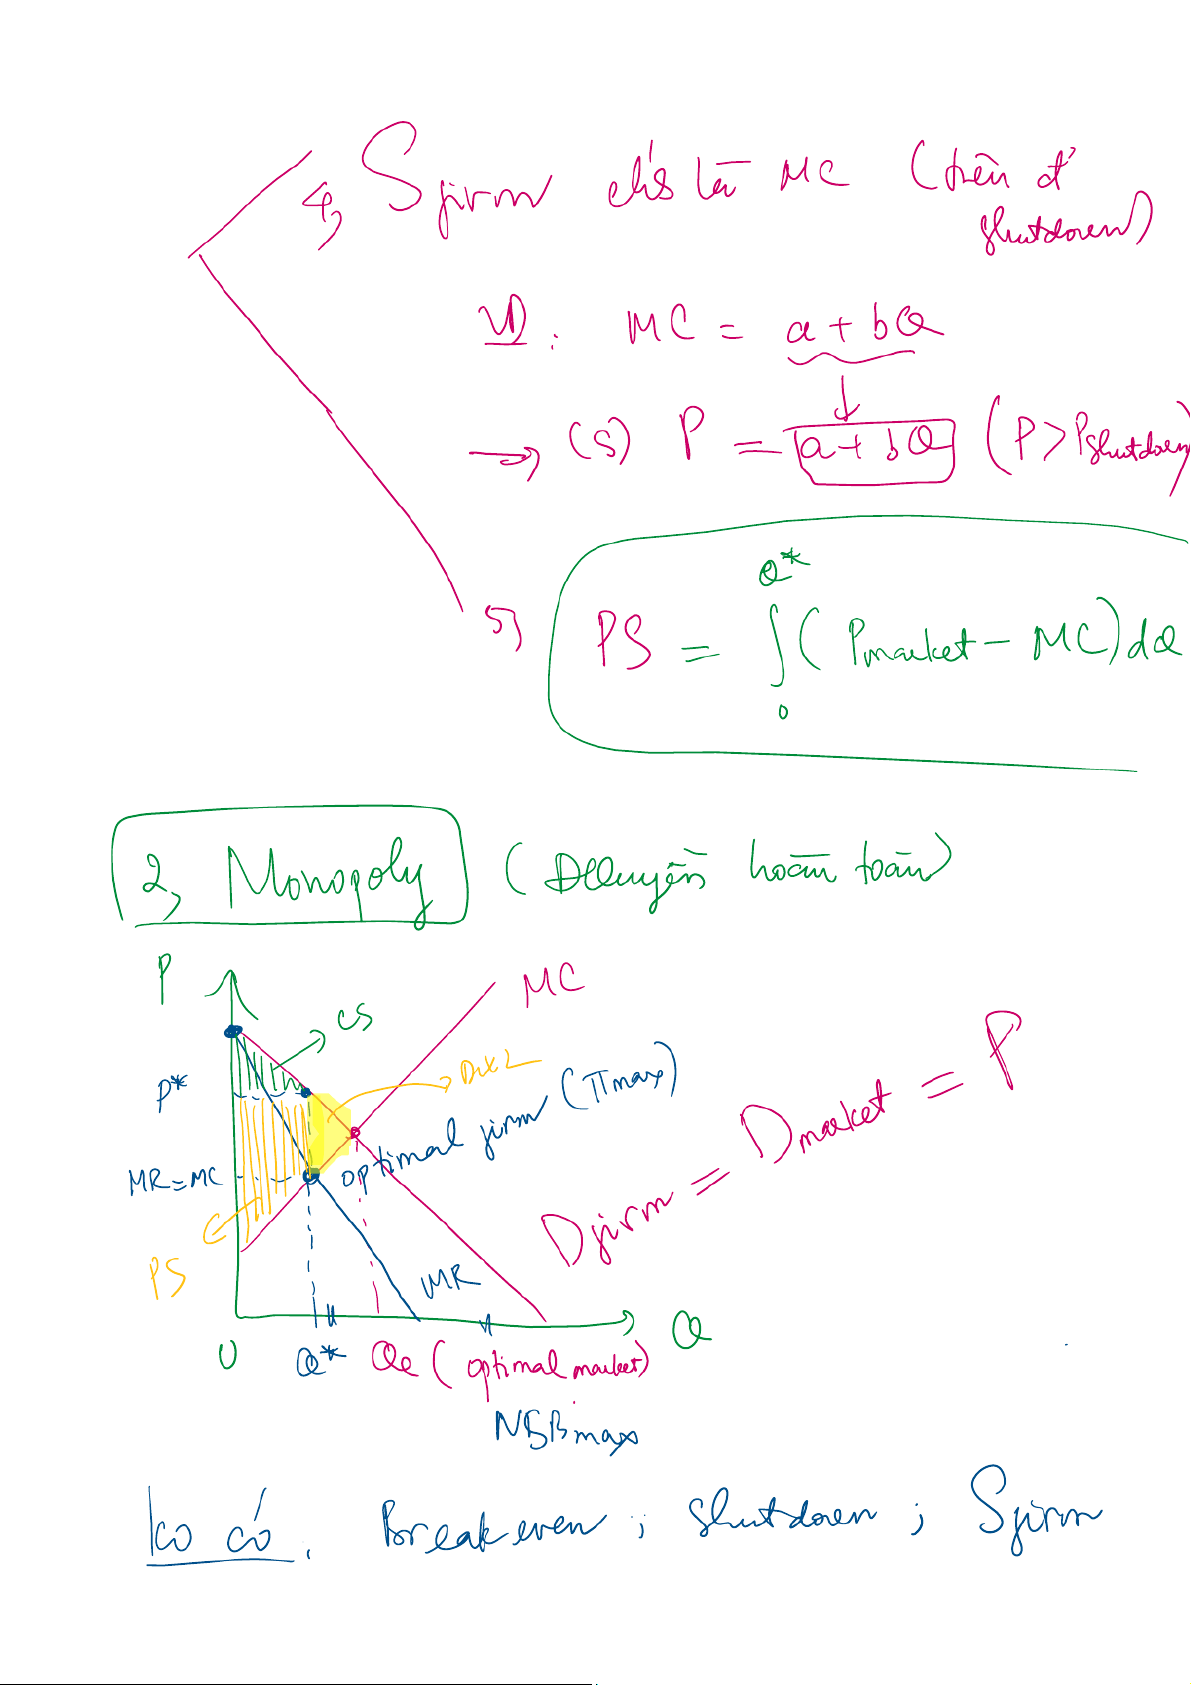 4, Sfirm chỉ là MC (trên đ'
shutdown)
VD: MC = a + bQ
→ (S) P = a + bQ (P > Pshutdown)
5) PS = ∫ Q* 0 (Pmarket − MC) dQ
2, Monopoly (ĐQuyền hoàn toàn)
P
MC
CS
P*
DWL
optimal firm (πmax)
Dfirm = Dmarket = P
MR = MC
PS
MR
0 Q* Qe (optimal market) Q
NSBmax
Ko có: Breakeven ; shutdown ; Sfirm